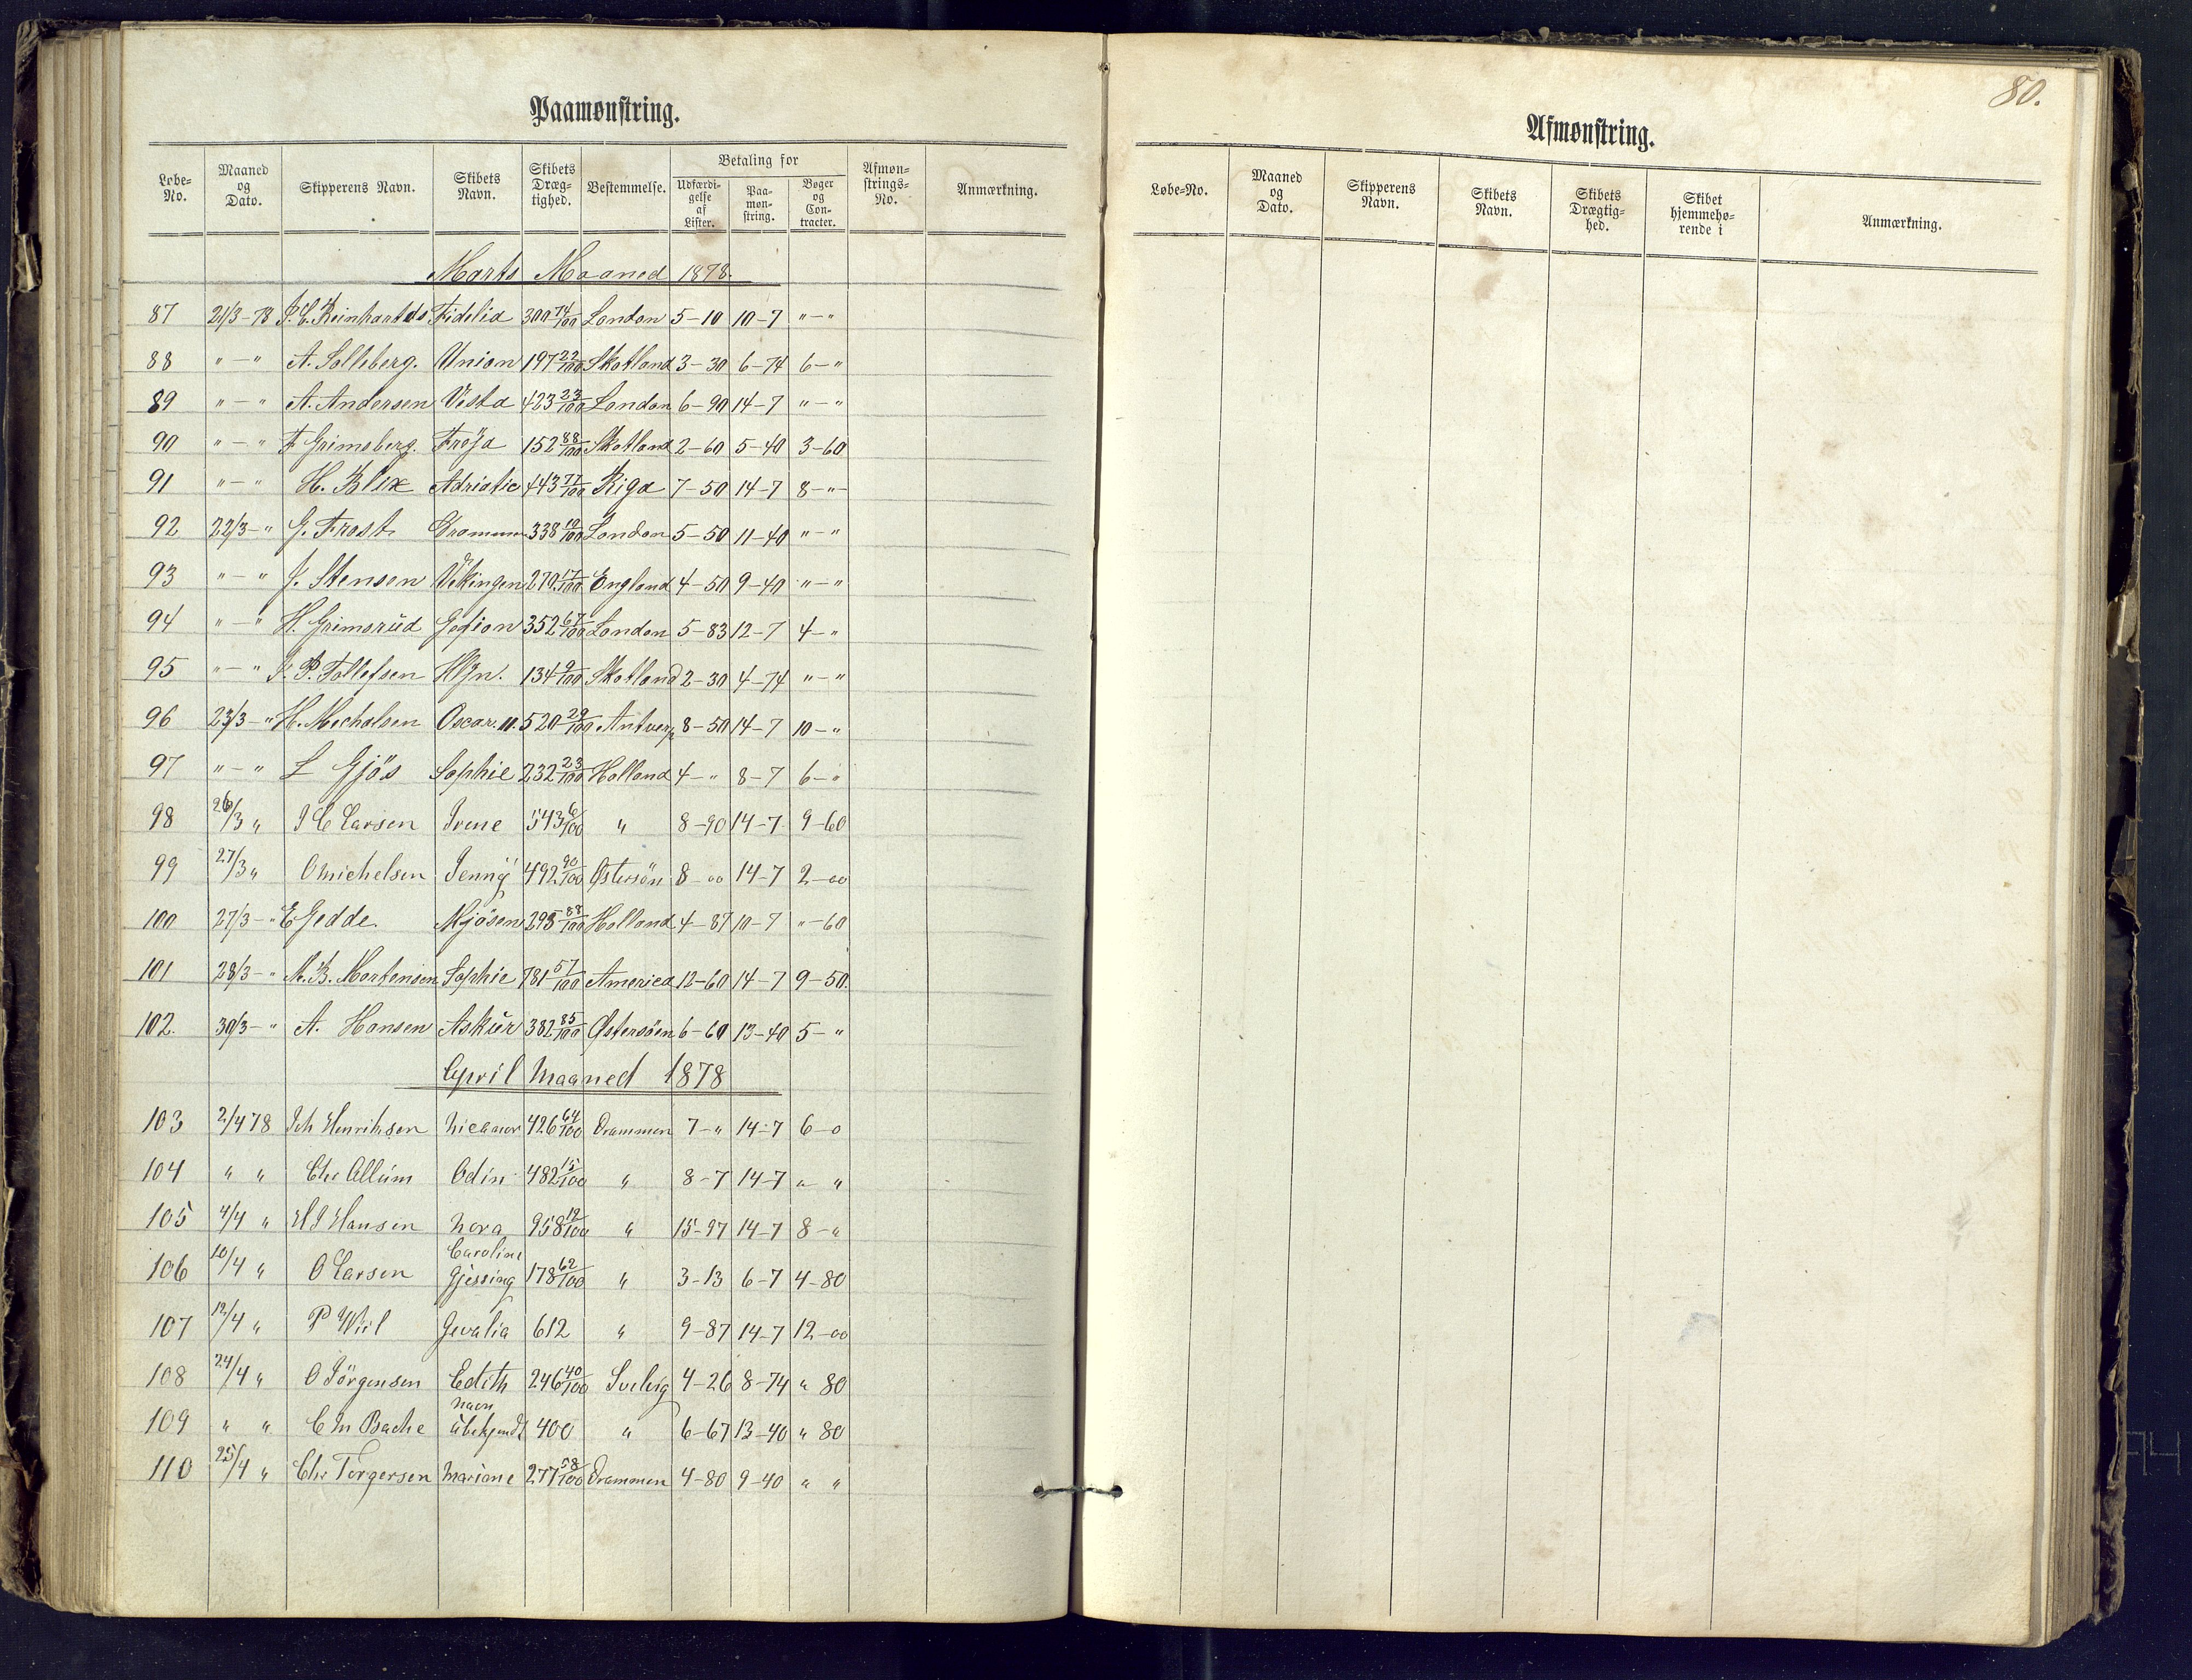 Paamønstring.
Løbe-No. Maaned og Dato. Skipperens Navn. Skibets Navn. Skibets Dræg-tighed. Bestemmelse. Betaling for Udfærdi-gelse af Lister. Paa-møn-string. Bøger og Con-tracter. Afmøn-strings-No. Anmærkning.
Marts Maaned 1878.
87 21/3-78 Reinhartds Fidelia 300 74/100 London 5-10 10-7 "-"
88 "-" A. Solleberg. Union 197 22/100 Skotland 3-30 6-74 6-"
89 "-" A. Andersen Vesta 423 23/100 London 6-90 14-7 "-"
90 "-" F Grimsberg. Fröja 152 88/100 Skotland 2-60 5-40 3-60
91 "-" H. Blix Adriatic 443 77/100 Riga 7-50 14-7 8-"-
92 22/3-" G. Frost 338 10/100 London 5-50 11-40 "-"
93 "-" J. Stensen Vikingen 270 17/100 England 4-50 9-40 "-"
94 "-" H. Grimsrüd Gefion 352 67/100 London 5-83 12-7 4-"
95 "-" P. Tollefsen 134 9/100 Skotland 2-30 4-74 "-"
96 23/3-" H. Mechalsen Oscar. II. 520 29/100 Antverp 8-50 14-7 10-"
97 "-" L Gjös Sophie 232 23/100 Holland 4-" 8-7 6-"
98 26/3 " J C Larsen Irene 543 6/100 " 8-90 14-7 9-60
99 27/3 " O Michelsen Jenny 492 90/100 Østersön 8-00 14-7 2-00
100 27/3-" E Gedde. Mjösen 298 88/100 Holland 4-87 10-7 "-60
101 28/3-" M. B. Mortensen Sophie 781 57/100 America 12-60 14-7 9-50.
102. 30/3-" A. Hansen Askür 382 85/100 Østersöen 6-60 13-40 5-"
April Maaned 1878
103 2/4 78 Joh Henriksen Nicanor 426 64/100 Drammen 7-" 14-7 6-0
104 " " Chr Allüm Odin 482 15/100 " 8-7 14-7 " "
105 4/4 " H J Hansen Nora 958 12/100 " 15-97 14-7 8-"
106 10/4 " O Larsen Caroline Gjessing 178 62/100 " 3-13 6-7 4-80
107 12/4 " P Wiel Gevalia 612 " 9-87 14-7 12-00
108 24/4 " O Jörgensen Edith 246 40/100 Svelvig 4-26 8-74 " 80
109 " " C M Bache Navn übekjendt 400 " 6-67 13-40 " 80
110 25/4 " Chr Torgersen Mariane 277 58/100 Drammen 4-80 9-40 " "
80.
Afmønstring.
Løbe-No. Maaned og Dato. Skipperens Navn. Skibets Navn. Skibets Drægtig-hed. Skibet hjemmehø-rende i Anmærkning.